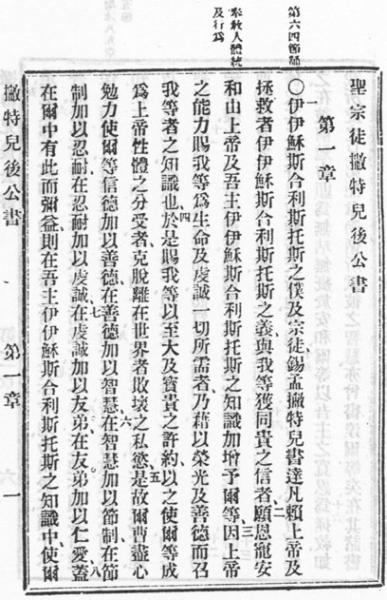 第六四節誦
聖宗徒撇特兒後公書
第一章
○伊伊穌斯合利斯托斯之僕及宗徒、錫孟撇特兒書達凡賴上帝及
拯救者伊伊穌斯合利斯托斯之義與我等獲同貴之信者、二願恩寵安
和由上帝及吾主伊伊穌斯合利斯托斯之知識加增予爾等、三因上帝
之能力賜我等爲生命及虔誠一切所需者、乃藉以榮光及善德而召
我等者之知識也、四於是賜我等以至大及寶貴之許約、以之使爾等成
爲上帝性體之分受者、克脫離在世界者敗壞之私慾、五是故爾曹盡心
勉力使爾等信德加以善德、在善德加以智慧、六在智慧加以節制、在節
制加以忍耐、在忍耐加以虔誠、七在虔誠加以友弟、在友弟加以仁愛、八蓋
在爾中有此而彌益、則在吾主伊伊穌斯合利斯托斯之知識中、使爾
及行爲
撇特兒後公書
第一章
一